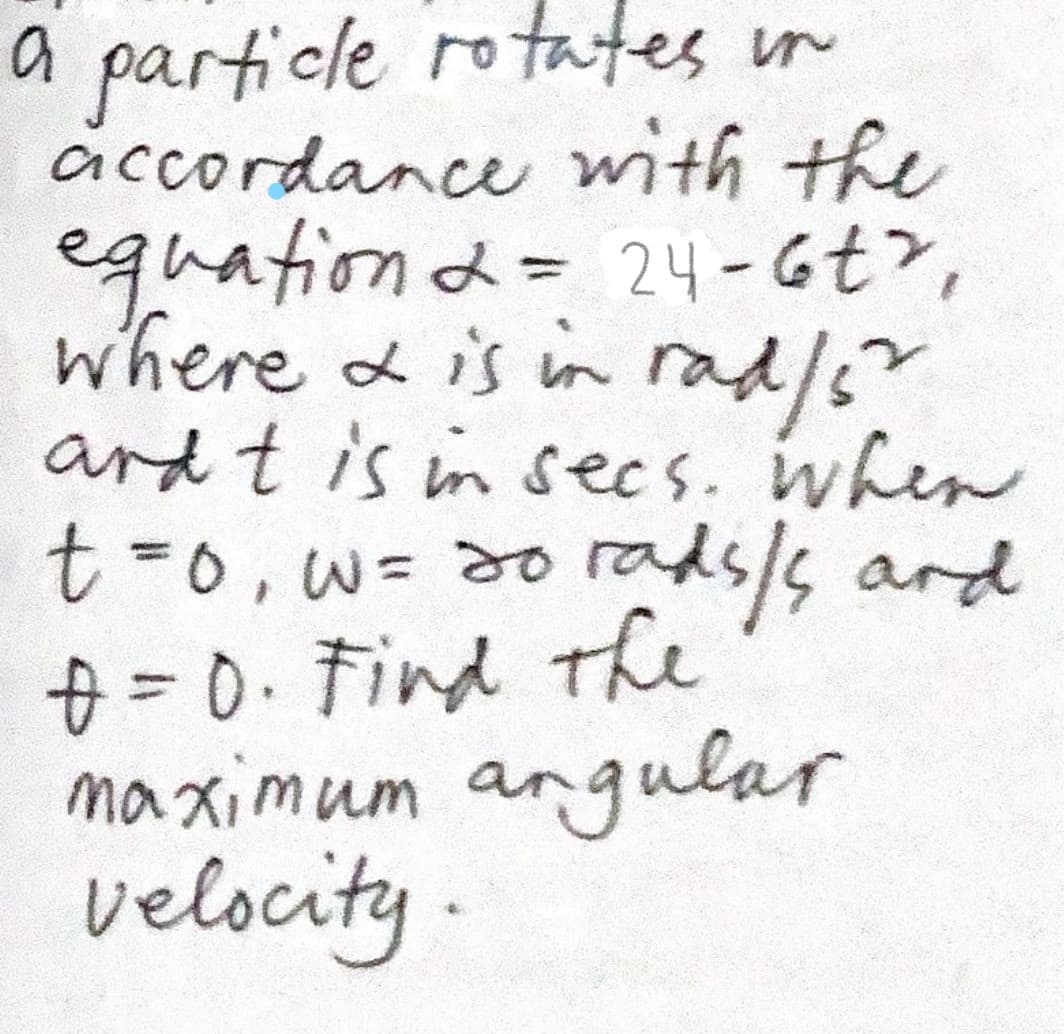 a particle rotates in
accordance with the
equation α = 24 - 6t²,
where α is in rad/s²
and t is in secs. when
t = 0, w = 20 rads/s and
θ = 0. Find the
maximum angular
velocity.